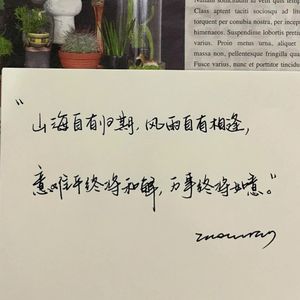 Nullam sollicitudin id velit quis temp
Class aptent taciti sociosqu ad l
torquent per conubia nostra, per incep
himenaeos. Suspendisse lobortis preti
varius. Proin metus urna, aliquet
massa non, pellentesque fringilla qua
Fusce varius, nunc et portitor tincidu
“山海自有归期，风雨自有相逢，
意难平终将和解，万事终将如意。”